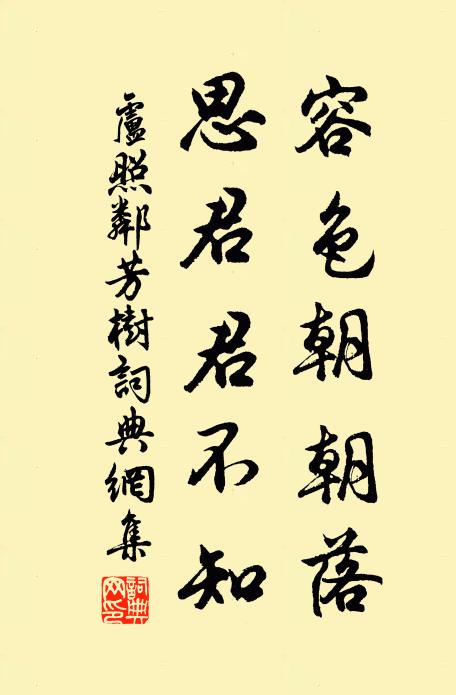 容色朝朝落
思君君不知
盧照鄰芳樹詞典網集
詞典
网印